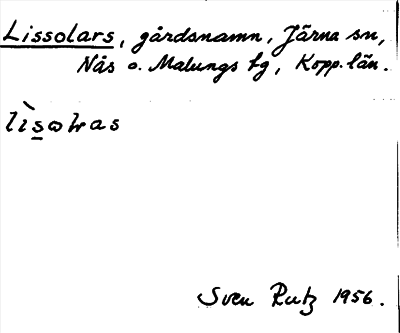 Lissolars, gårdsnamn, Järna sn,
Nås o. Malungs tg, Kopp. län.
lìsωɫras
Sven Rutz 1956.